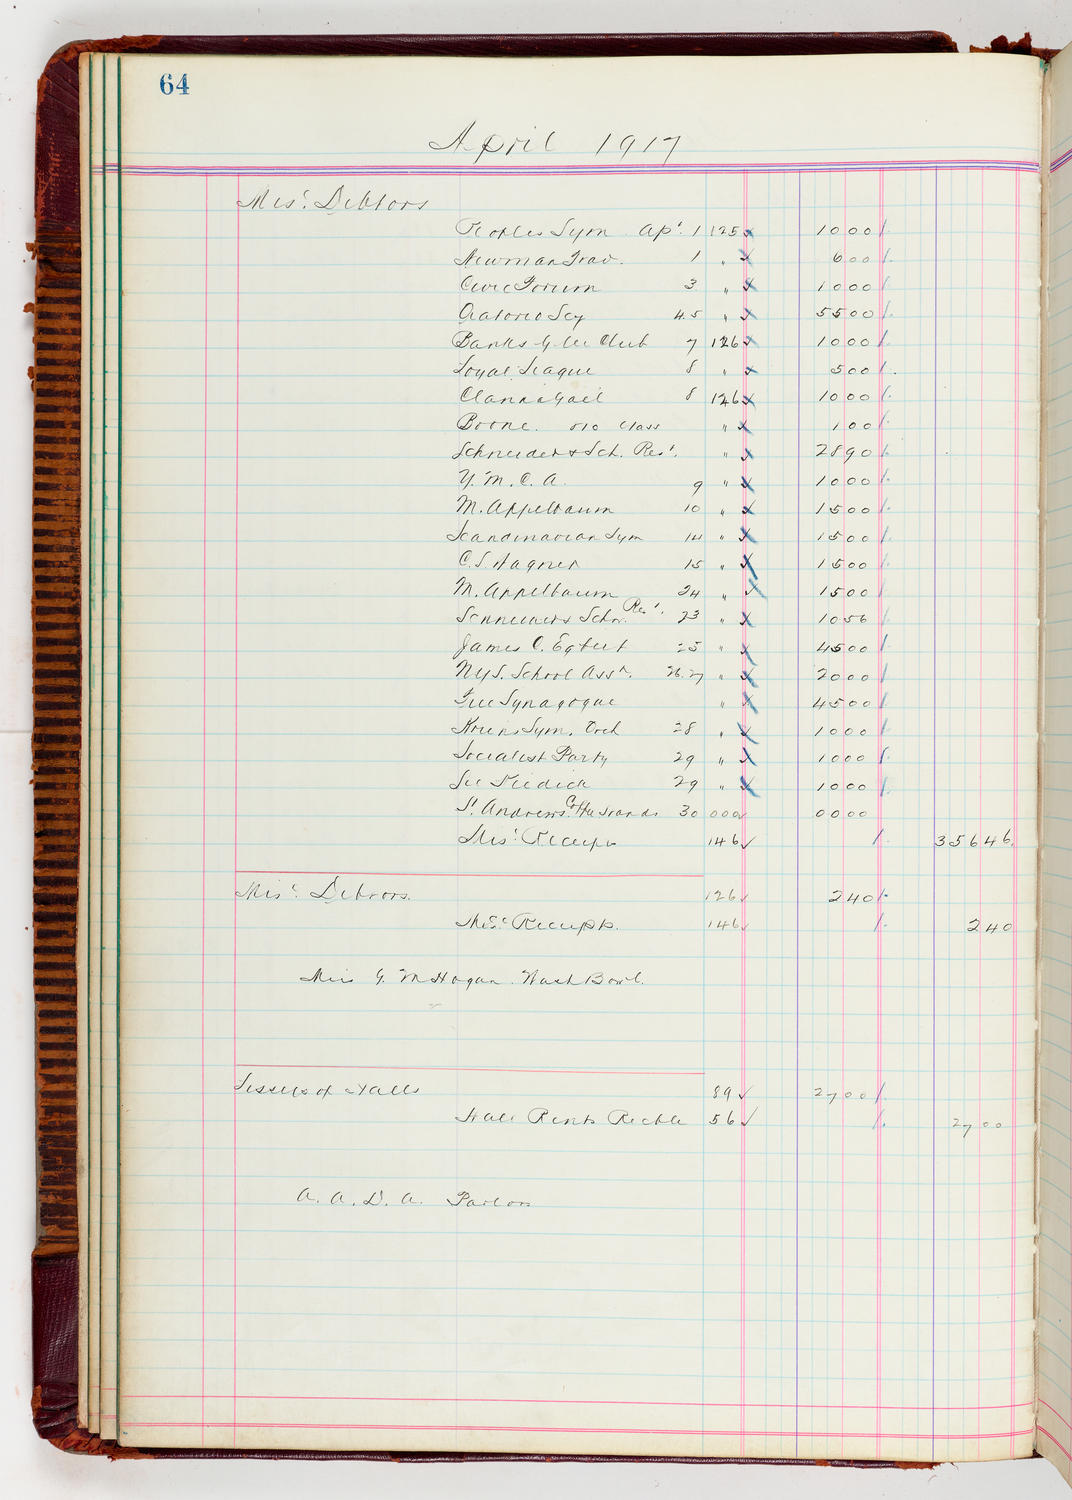 64
April 1917
Misc. Debtors
Peoples Sym Apl. 1 125 1000
Newman Trav. 1 " 600
Civic Forum 3 " 1000
Oratorio Scy 4.5 " 5500
Banks Glee Club 7 126 1000
Loyal League 8 " 500
Clan na Gael 8 126 1000
Boone. 010 Class " 100
Schneider & Sch. Rest. " 2890
Y. M. C. A. 9 " 1000
M. Appelbaum 10 " 1500
Scandinavian Sym 14 " 1500
C. S. Wagner 15 " 1500
M. Appelbaum 24 " 1500
Rest. 23 " 1056
James C. Egbert 25 " 4500
NYS. School Assn. 26.27 " 2000
Free Synagogue " 4500
Sym. Orch 28 " 1000
Socialist Party 29 " 1000
29 " 1000
St. Andrews 30 000 0000
Misc. Receipts 146 35646
Misc. Debtors. 126 240
Misc Receipts. 146 240
Miss G. M Hogan. Wash Bowl.
Lessees of Halls 89 2700
Hall Rents Rec'ble 56 2700
A. A. D. A. Parlors